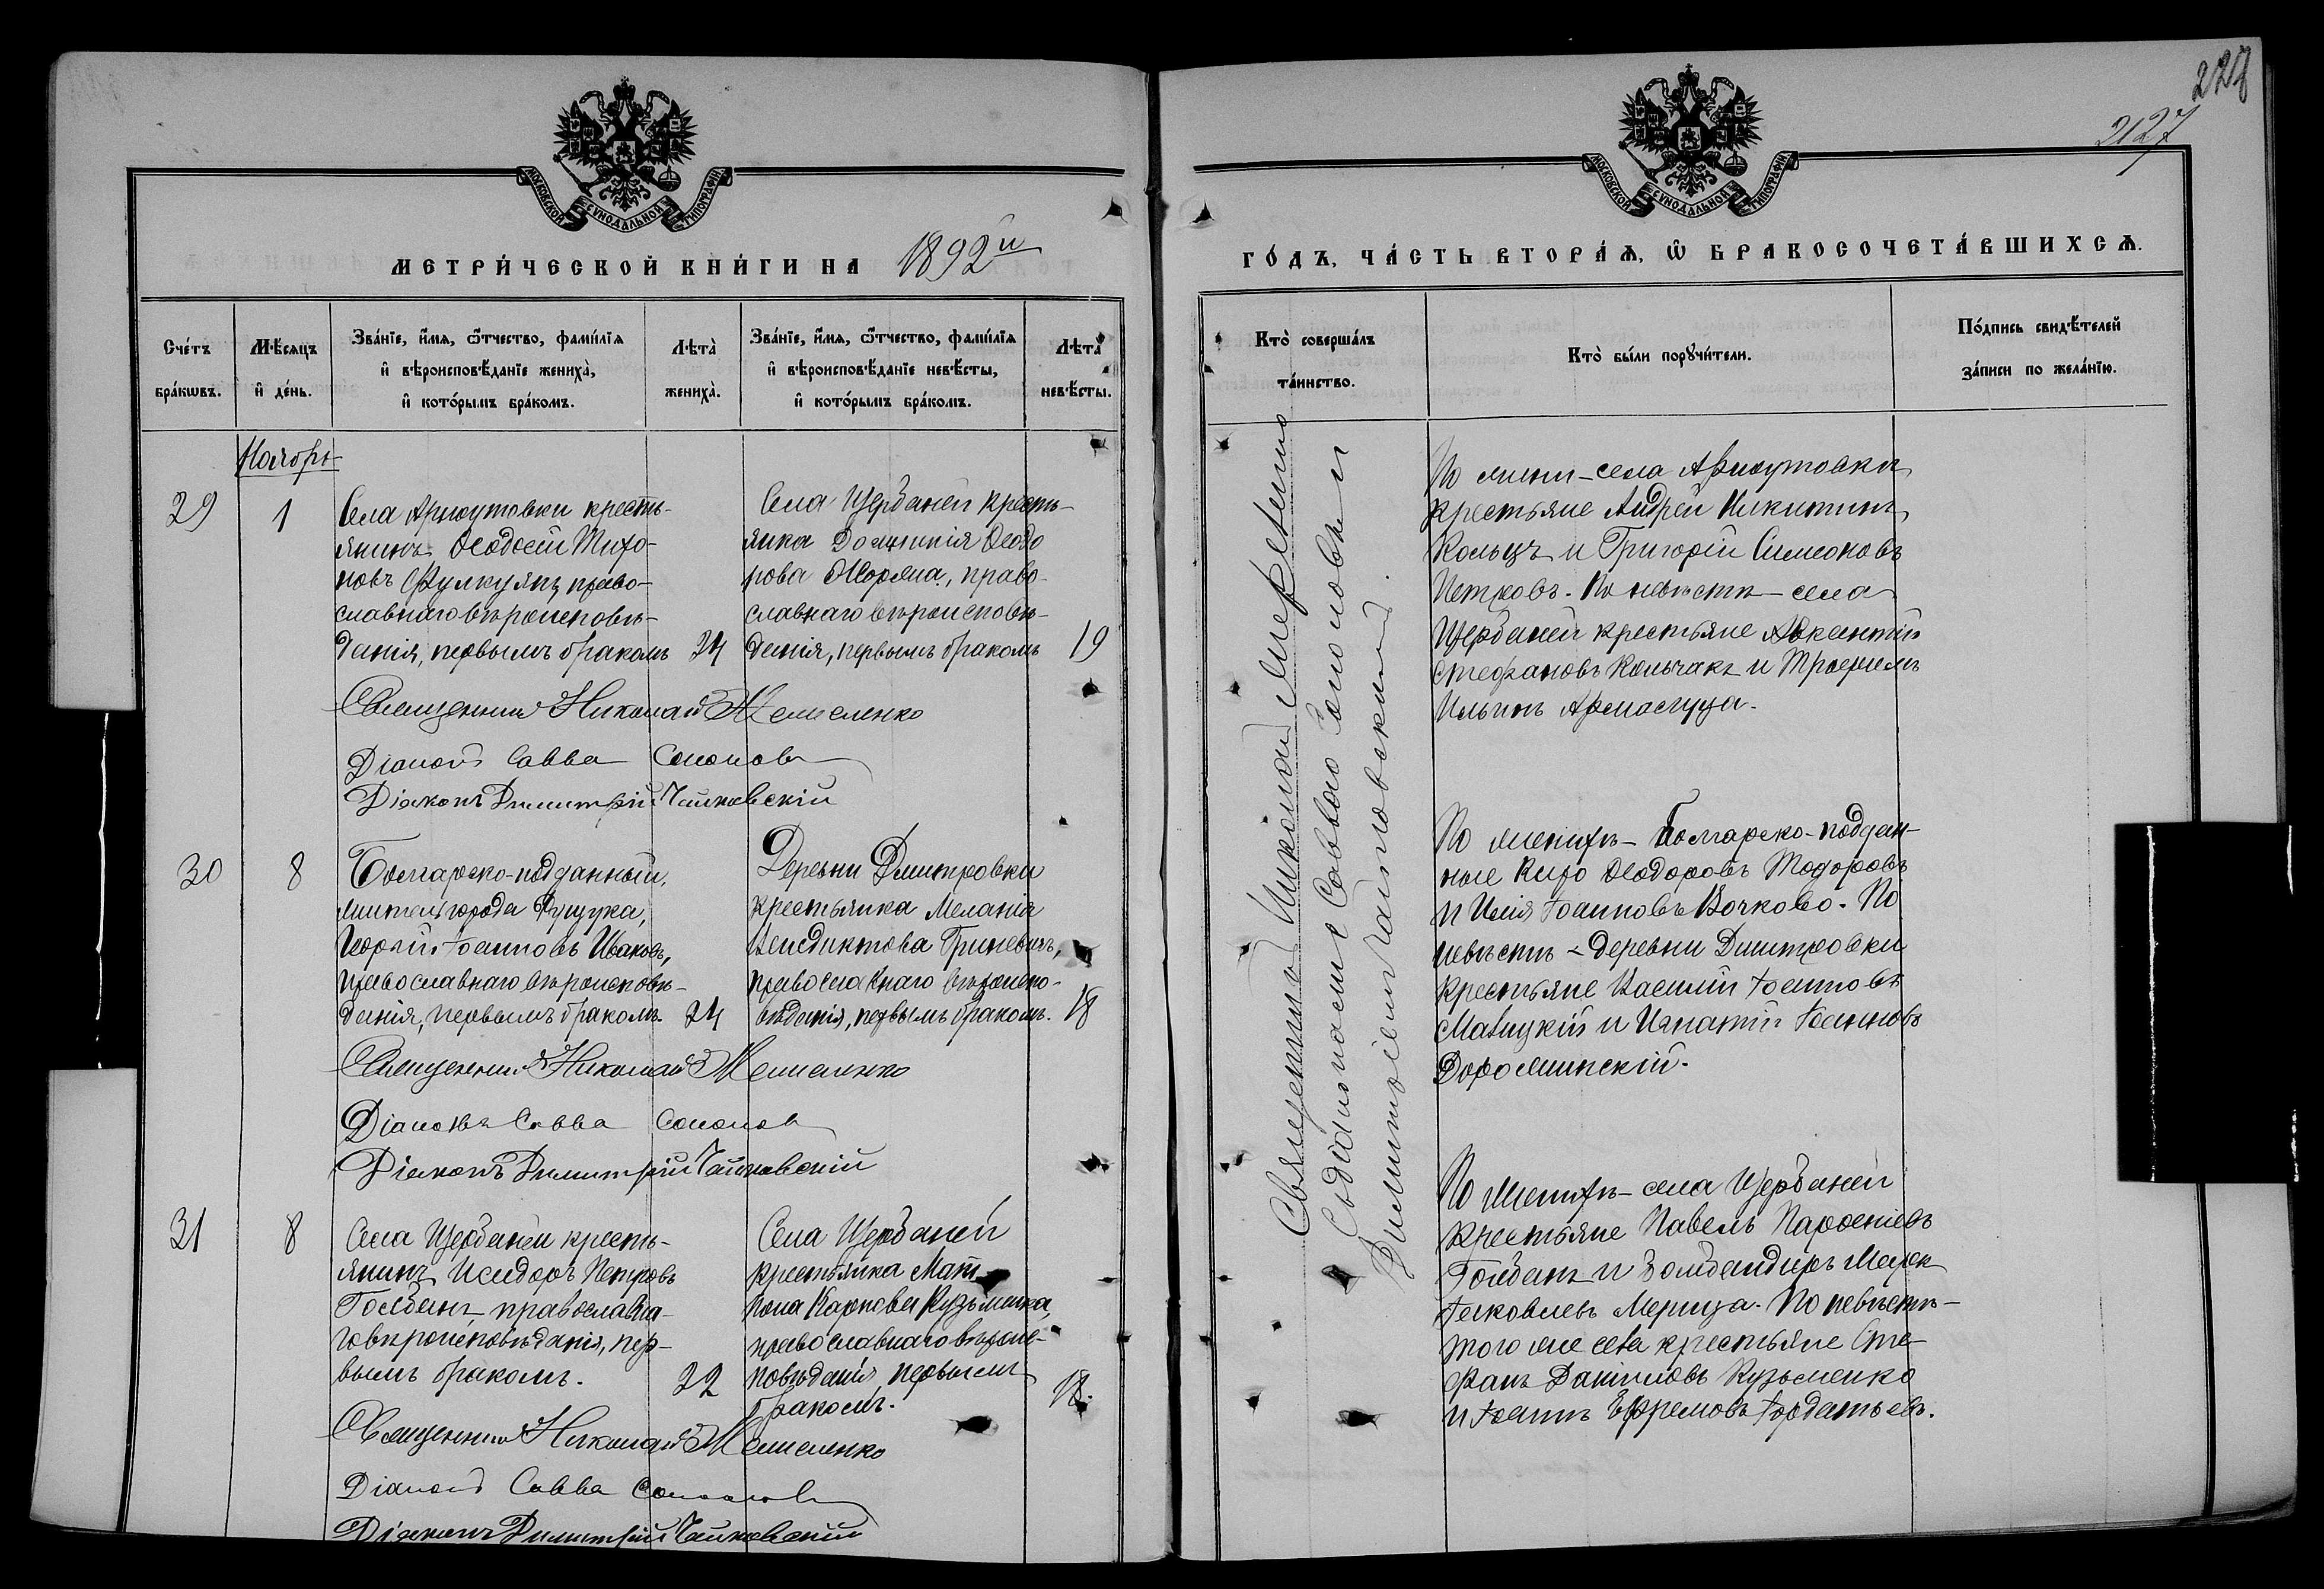 МОСКОВСКОЙ СѴНОДАЛЬНОЙ ТИПОГРАФІИ
МЕТРИ́ЧЕСКОЙ КНИ́ГИ НА 1892й
Сче́тъ бра́кωвъ.
Мѣ́сяцъ и҆ де́нь.
Зва́нїе, и҆́мѧ, ѻ҆́тчество, фами́лїѧ и҆ вѣроисповѣ́данїе женихà, и҆ кото́рымъ бра́комъ.
Лѣтà женихà.
Зва́нїе, и҆́мѧ, ѻ҆́тчество, фами́лїѧ и҆ вѣроисповѣ́данїе невѣ́сты, и҆ кото́рымъ бра́комъ.
Лѣтà невѣ́сты.
Ноябрь
29
1
Села Арнаутовки кресть-
янинъ Ѳеодосій Тихо-
новъ Фулкулянъ, право-
славнаго вѣроисповѣ-
данія, первымъ бракомъ
24
Села Щербаней кресть-
янка Домникія Ѳеодо
рова Жоряна, право-
славнаго вѣроисповѣ-
данія, первымъ бракомъ
19
Священникъ Николай
Діаконъ Савва Сопоновъ
Діаконъ Димитрій Чайковскій
30
8
Болгарско-подданный,
житель города Рущука,
Георгій Іоанновъ Иваковъ,
православнаго вѣроисповѣ-
данія, первымъ бракомъ.
24
Деревни Дмитровки
крестьянка Меланія
Венедиктова Гриневичъ,
православнаго вѣроиспо-
вѣданія, первымъ бракомъ.
18
Священникъ Николай
Діаконъ Савва Сопонов
Діаконъ Димитрій Чайковскій
31
8
Села Щербаней кресть-
янинъ Исидоръ Петровъ
Голбанъ, православна-
го вѣроисповѣданія, пер-
вымъ бракомъ.
22
Села Щербаней
крестьянка Мат
рона Карпова Кузьменка,
православнаго вѣроис-
повѣданія, первымъ
бракомъ.
18.
Священникъ Николай
Діаконъ Савва Сопоновъ
Діаконъ Димитрій Чайковскій
2127
МОСКОВСКОЙ СѴНОДАЛЬНОЙ ТИПОГРАФІИ
ГО́ДЪ, ЧА́СТЬ ВТОРА́Ѧ, Ѡ҆ БРАКОСОЧЕТА́ВШИХСѦ.
Кто̀ соверша́лъ та́инство.
Кто̀ бы́ли порꙋчи́тели.
По́дпись свидѣ́телей за́писи по жела́нїю.
Священникъ Николай
съ діаконами Саввою Сопоновымъ и
Димитріемъ Чайковскимъ.
По жениху - села Арнаутовки
крестьяне Андрей Никитинъ
Кольцъ и Григорій Симеоновъ
Петковъ. По невѣстѣ - села
Щербаней крестьяне Авксентій
Стефановъ Колчакъ и Трофимъ
Ильинъ
По женихѣ - Болгарско-поддан-
ные Киро Ѳеодоровъ Тодоровъ
и Илія Іоанновъ Вочково. По
невѣстѣ - деревни Дмитровки
крестьяне Василій Іоанновъ
Мавицкій и Игнатій Іоанновъ
Дорожинскій.
По женихѣ - села Щербаней
крестьяне Павелъ Парѳеніевъ
Голбанъ и
Іаковлевъ Мерица. По невѣстѣ -
того же села крестьяне Сте-
фанъ Даниловъ Кузьменко
и Іоаннъ Ефремовъ Іордатьевъ.